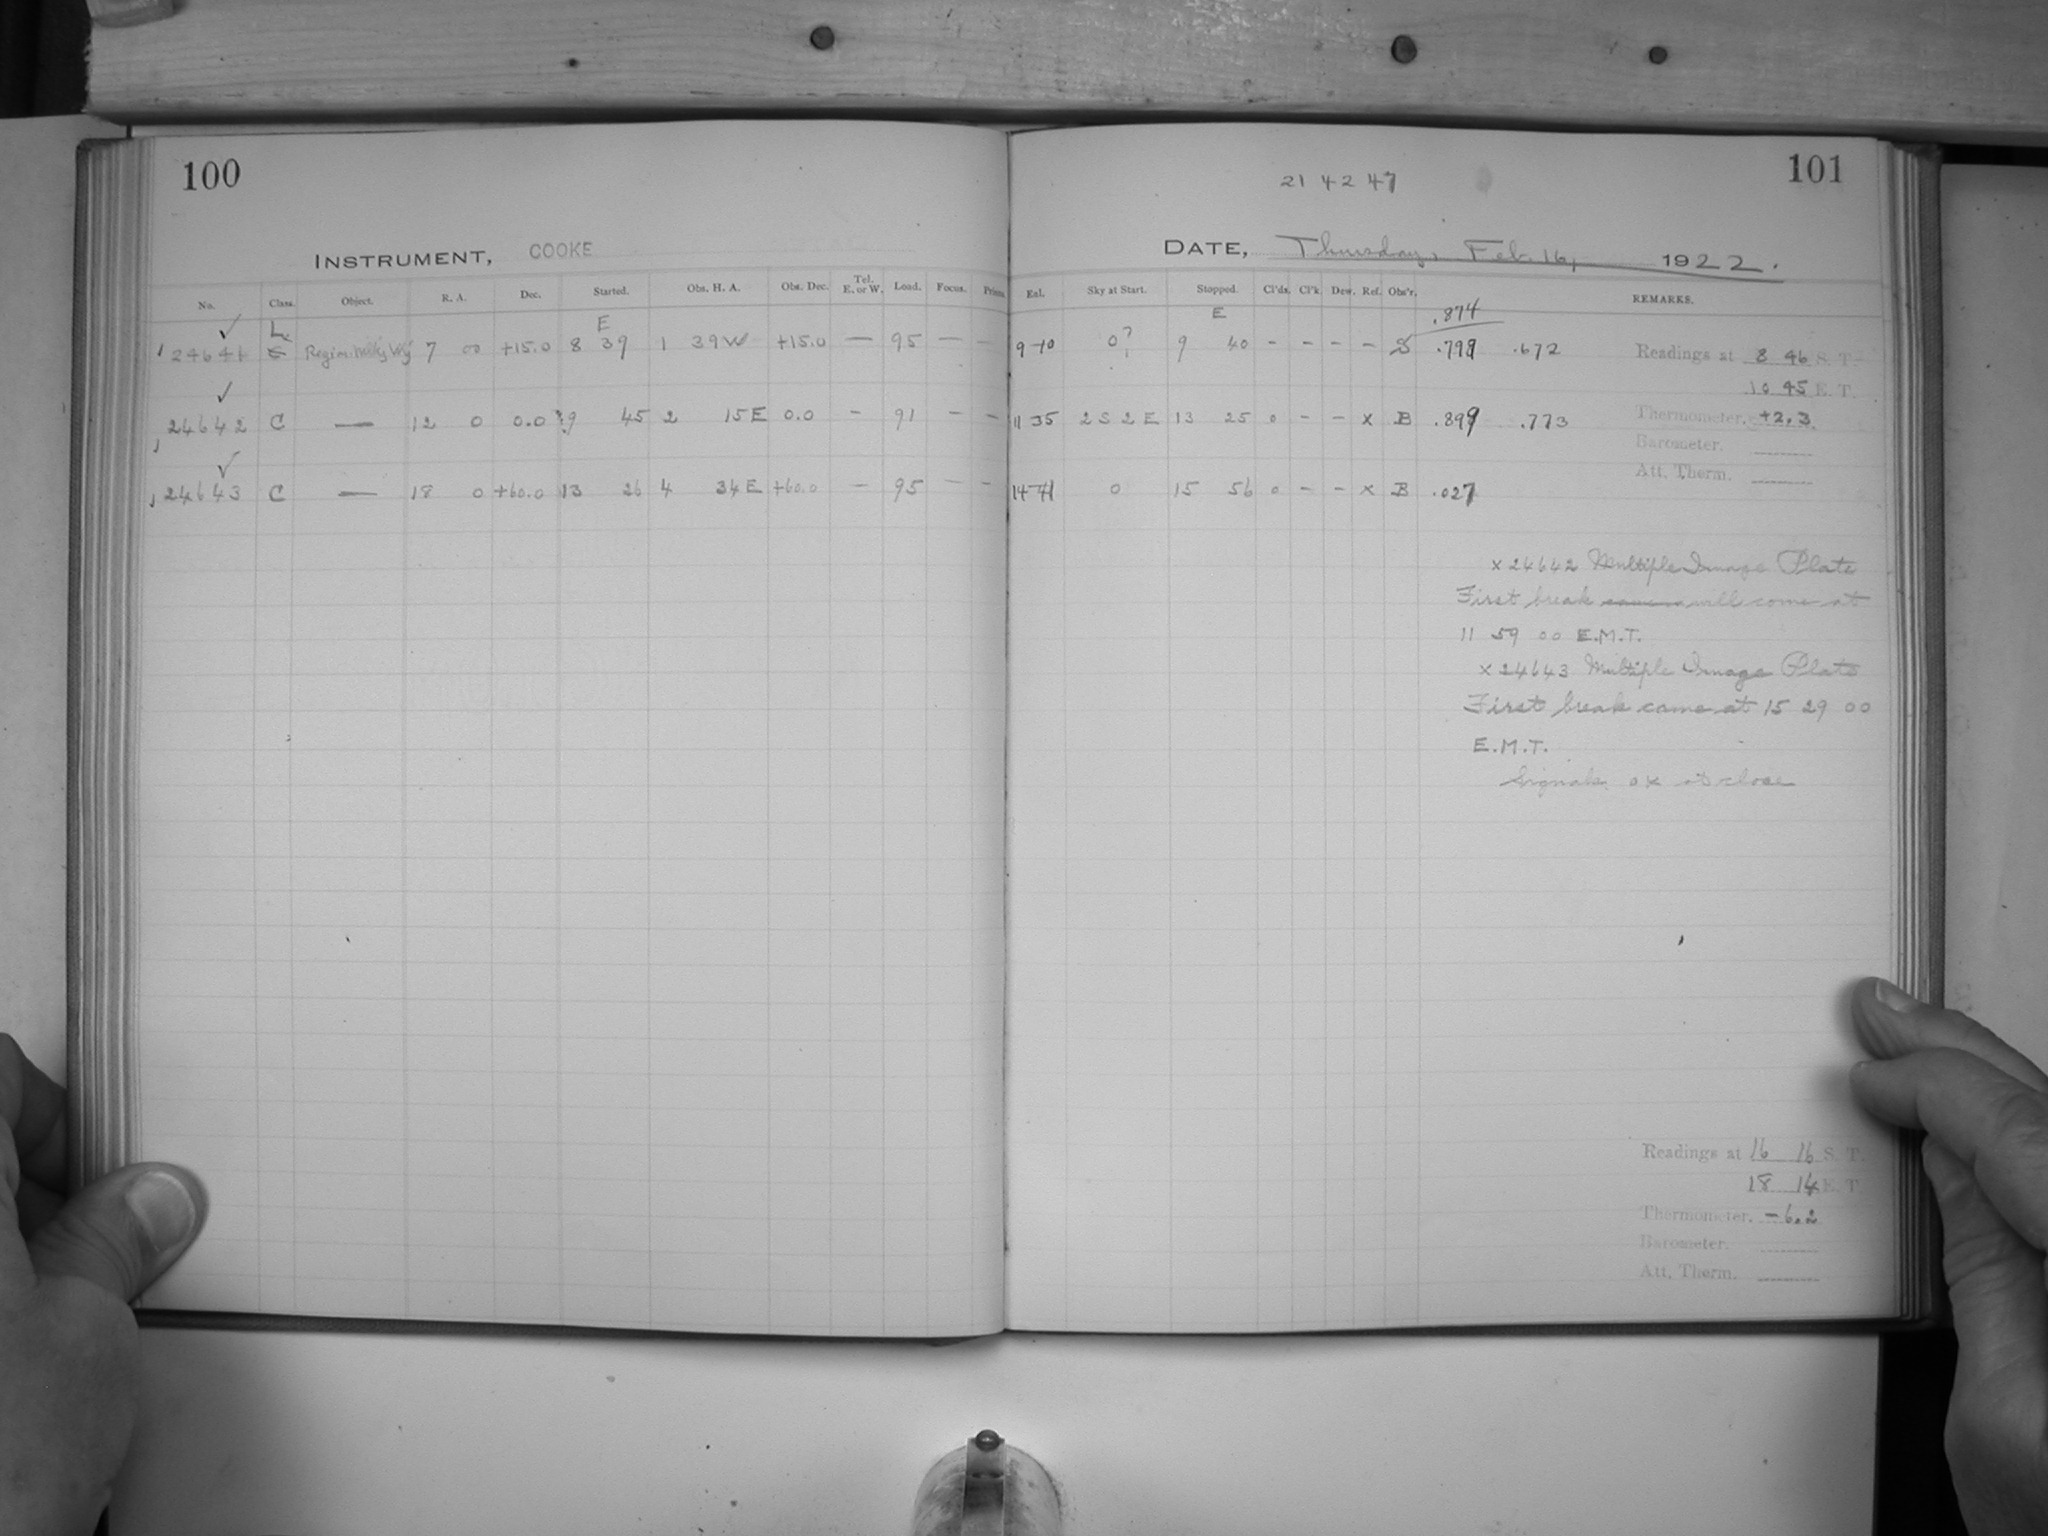 100
INSTRUMENT, COOKE
No. Class. Object. R. A. Dec. Started. Obs. H. A. Obs. Dec. Tel. E. or W. Load. Focus. Prism.
✓ L E
24641 C Region Milky Way 7 00 +15.0 8 39 1 39 W +15.0 — 95 — —
✓
24642 C — 12 0 0.0 9 45 2 15 E 0.0 - 91 - -
✓
24643 C — 18 0 +60.0 13 26 4 34 E +60.0 - 95 - -
101
21 42 47
DATE, Thursday, Feb. 16, 1922.
Exl. Sky at Start. Stopped. Cl'ds. Cl'k. Dew. Ref. Obs'r. REMARKS.
E .874
9 10 0? 9 40 - - - - S .799 .672 Readings at 8 46 S. T.
10 45 E. T.
11 35 2 S 2 E 13 25 0 - - x B .899 .773 Thermometer, +2.3
Barometer.
Att. Therm.
14 41 0 15 56 0 - - x B .027
x 24642 Multiple Image Plate
First break came will come at
11 59 00 E.M.T.
x 24643 Multiple Image Plate
First break came at 15 29 00
E.M.T.
Signals OK at close
Readings at 16 16 S. T.
18 14 E. T.
Thermometer. -6.2
Barometer.
Att. Therm.